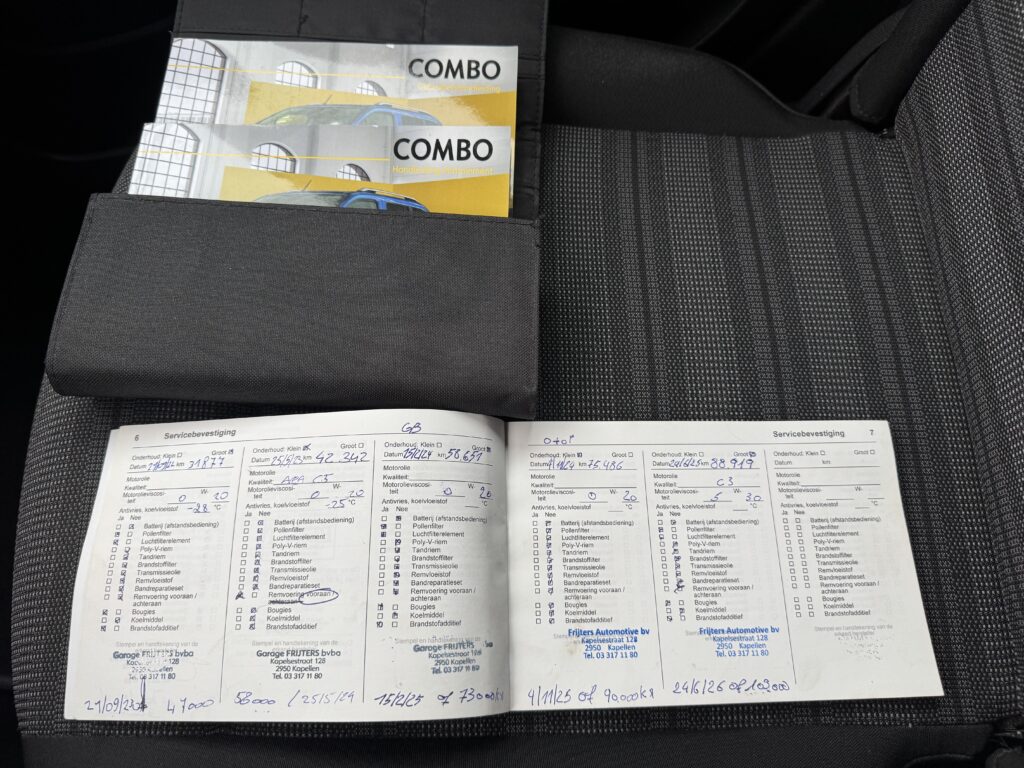 COMBO
COMBO
6 Servicebevestiging
GB
Onderhoud: Klein Groot
Datum km 31877
Motorolie
Kwaliteit:
Motorolieviscosi-
teit 0 W- 20
Antivries, koelvloeistof -28 °C
Ja Nee
Batterij (afstandsbediening)
Pollenfilter
Luchtfilterelement
Poly-V-riem
Tandriem
Brandstoffilter
Transmissieolie
Remvloeistof
Bandreparatieset
Remvoering vooraan /
achteraan
Bougies
Koelmiddel
Brandstofadditief
Stempel en handtekening van de
Garage FRIJTERS bvba
Kapelsestraat 128
2950 Kapellen
Tel. 03 317 11 80
47000
Onderhoud: Klein Groot
Datum 25/5/23 km 42.342
Motorolie
Kwaliteit: C5
Motorolieviscosi-
teit 0 W- 20
Antivries, koelvloeistof -25 °C
Ja Nee
Batterij (afstandsbediening)
Pollenfilter
Luchtfilterelement
Poly-V-riem
Tandriem
Brandstoffilter
Transmissieolie
Remvloeistof
Bandreparatieset
Remvoering vooraan /
achteraan
Bougies
Koelmiddel
Brandstofadditief
Stempel en handtekening van de
Garage FRIJTERS bvba
Kapelsestraat 128
2950 Kapellen
Tel. 03 317 11 80
58000 / 25/5/24
Onderhoud: Klein Groot
Datum km 58.651
Motorolie
Kwaliteit:
Motorolieviscosi-
teit 0 W- 20
Antivries, koelvloeistof °C
Ja Nee
Batterij (afstandsbediening)
Pollenfilter
Luchtfilterelement
Poly-V-riem
Tandriem
Brandstoffilter
Transmissieolie
Remvloeistof
Bandreparatieset
Remvoering vooraan /
achteraan
Bougies
Koelmiddel
Brandstofadditief
Stempel en handtekening van de
Garage FRIJTERS
Kapelsestraat 128
2950 Kapellen
Tel. 03 317 11 80
15/2/25 of 73000km
Servicebevestiging 7
Onderhoud: Klein Groot
Datum km 75.486
Motorolie
Kwaliteit:
Motorolieviscosi-
teit 0 W- 20
Antivries, koelvloeistof °C
Ja Nee
Batterij (afstandsbediening)
Pollenfilter
Luchtfilterelement
Poly-V-riem
Tandriem
Brandstoffilter
Transmissieolie
Remvloeistof
Bandreparatieset
Remvoering vooraan /
achteraan
Bougies
Koelmiddel
Brandstofadditief
Frijters Automotive bv
Kapelsestraat 128
2950 Kapellen
Tel. 03 317 11 80
9/11/25 of 90.000km
Onderhoud: Klein Groot
Datum 24/6/25 km 88.919
Motorolie
Kwaliteit: C3
Motorolieviscosi-
teit 5 W- 30
Antivries, koelvloeistof °C
Ja Nee
Batterij (afstandsbediening)
Pollenfilter
Luchtfilterelement
Poly-V-riem
Tandriem
Brandstoffilter
Transmissieolie
Remvloeistof
Bandreparatieset
Remvoering vooraan /
achteraan
Bougies
Koelmiddel
Brandstofadditief
Frijters Automotive bv
Kapelsestraat 128
2950 Kapellen
Tel. 03 317 11 80
24/6/26 of
Onderhoud: Klein Groot
Datum km:
Motorolie
Kwaliteit:
Motorolieviscosi-
teit W-
Antivries, koelvloeistof °C
Ja Nee
Batterij (afstandsbediening)
Pollenfilter
Luchtfilterelement
Poly-V-riem
Tandriem
Brandstoffilter
Transmissieolie
Remvloeistof
Bandreparatieset
Remvoering vooraan /
achteraan
Bougies
Koelmiddel
Brandstofadditief
Stempel en handtekening van de